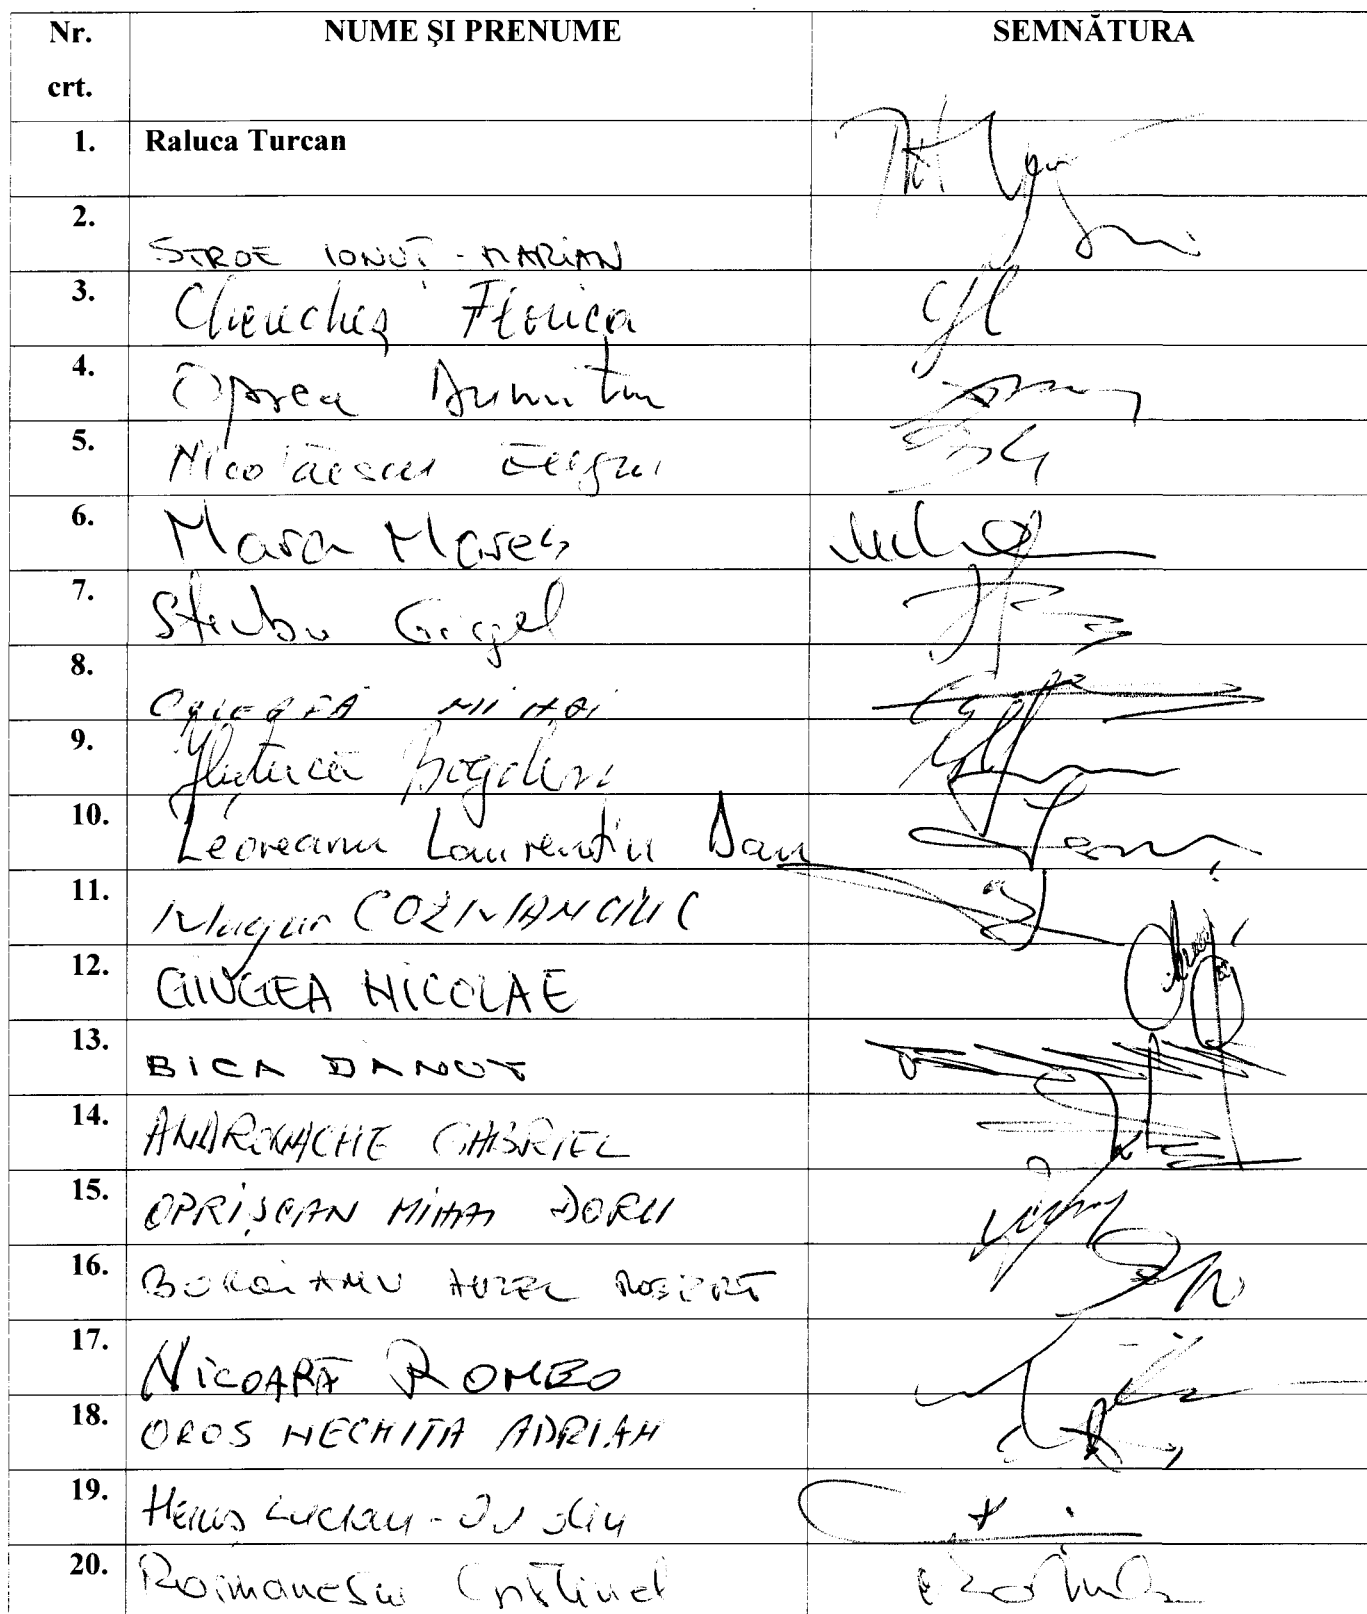 Nr. crt. NUME ŞI PRENUME SEMNĂTURA
1. Raluca Turcan
2. STROE IONUȚ-MARIAN
3. Cherecheș Florica
4. Oprea Dumitru
5. Nicolaescu
6. Mara Mareș
7. Știrbu Gigel
8. MIHAI
9. Huțucă Bogdan
10. Leoreanu Laurentiu Dan
11. Mugur COZMANCIUC
12. GIUGEA NICOLAE
13. BICA DANUT
14. ANDRONACHE GABRIEL
15. OPRIȘCAN MIHAI DORU
16. BOROIANU AUREL ROBERT
17. NICOARĂ ROMEO
18. OROS NECHITA ADRIAN
19. Heius Lucian-Ovidiu
20. Romanescu Cristinel